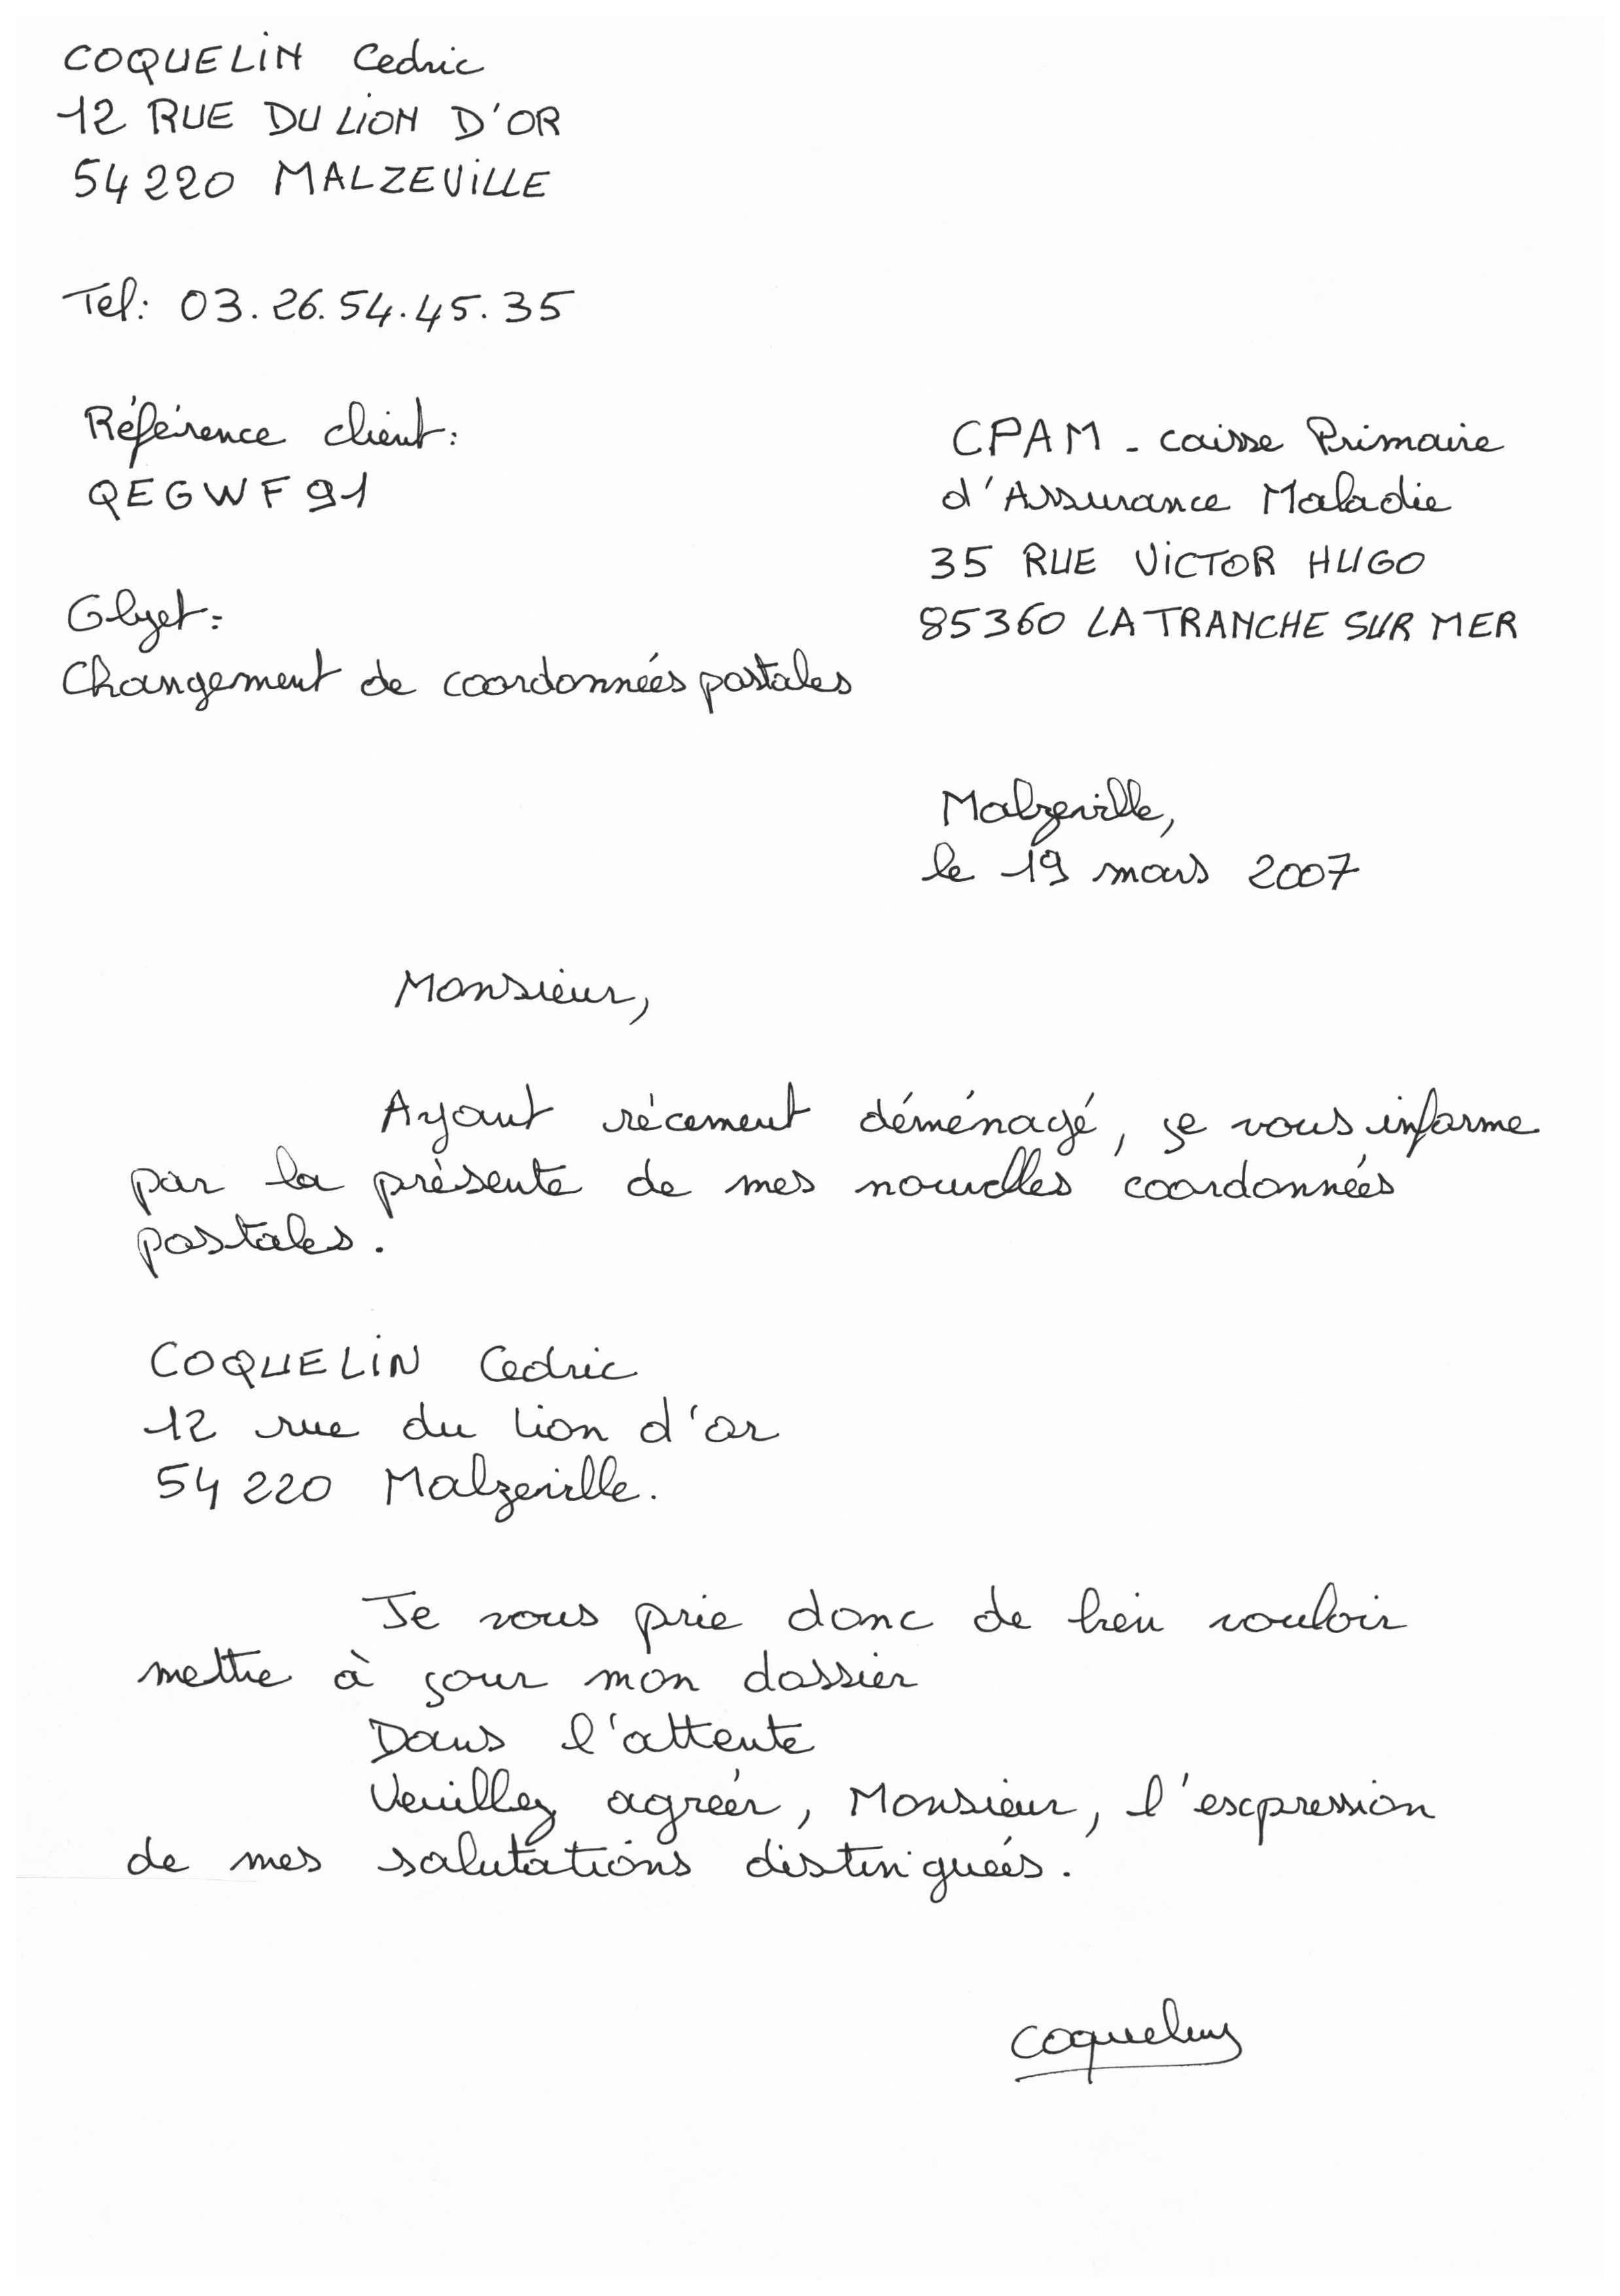 COQUELIN Cedric
12 RUE DU LION D'OR
54220 MALZEVILLE
Tel: 03.26.54.45.35
Référence client:
QEGWF91
CPAM - caisse Primaire
d'Assurance Maladie
35 RUE VICTOR HUGO
85360 LA TRANCHE SUR MER
Objet:
Changement de coordonnées postales
Malzeville,
le 19 mars 2007
Monsieur,
Ayant récement déménagé, je vous informe
par la présente de mes nouvelles coordonnées
postales.
COQUELIN Cedric
12 rue du lion d'or
54220 Malzeville.
Je vous prie donc de bien vouloir
mettre à jour mon dossier
Dans l'attente
Veuillez agréer, Monsieur, l'expression
de mes salutations distinguées.
Coquelin